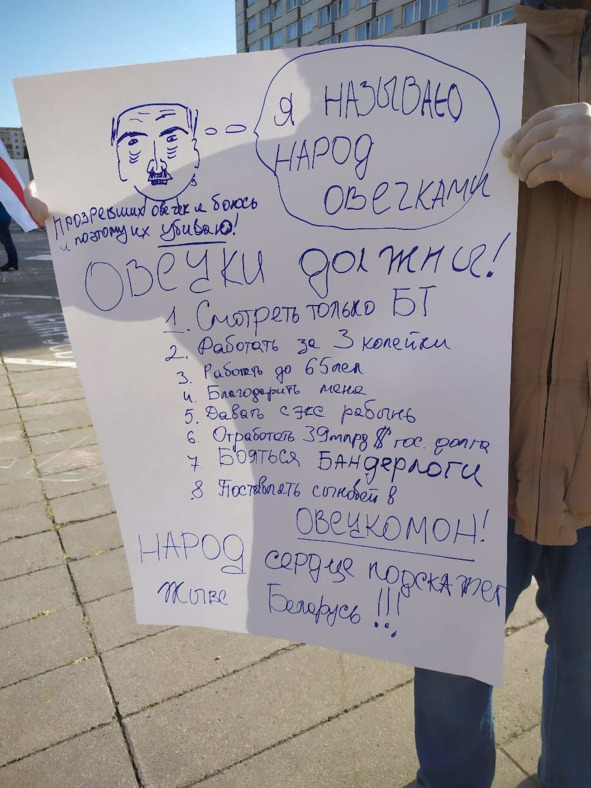 Я НАЗЫВАЮ
НАРОД
ОВЕЧКАМИ
Прозревших овечек я боюсь
и поэтому их убиваю!
ОВЕЧКИ должны!
1. Смотреть только БТ
2. Работать за 3 копейки
3. Работать до 65 лет
4. Благодарить меня
5. Давать секс рабынь
6. Отработать 39 млрд $ гос. долга
7. БОЯТЬСЯ БАНдерлоги
8 Поставлять сыновей в
ОВЕЧКОМОН!
НАРОД сердце подскажет
Жыве Беларусь!!!